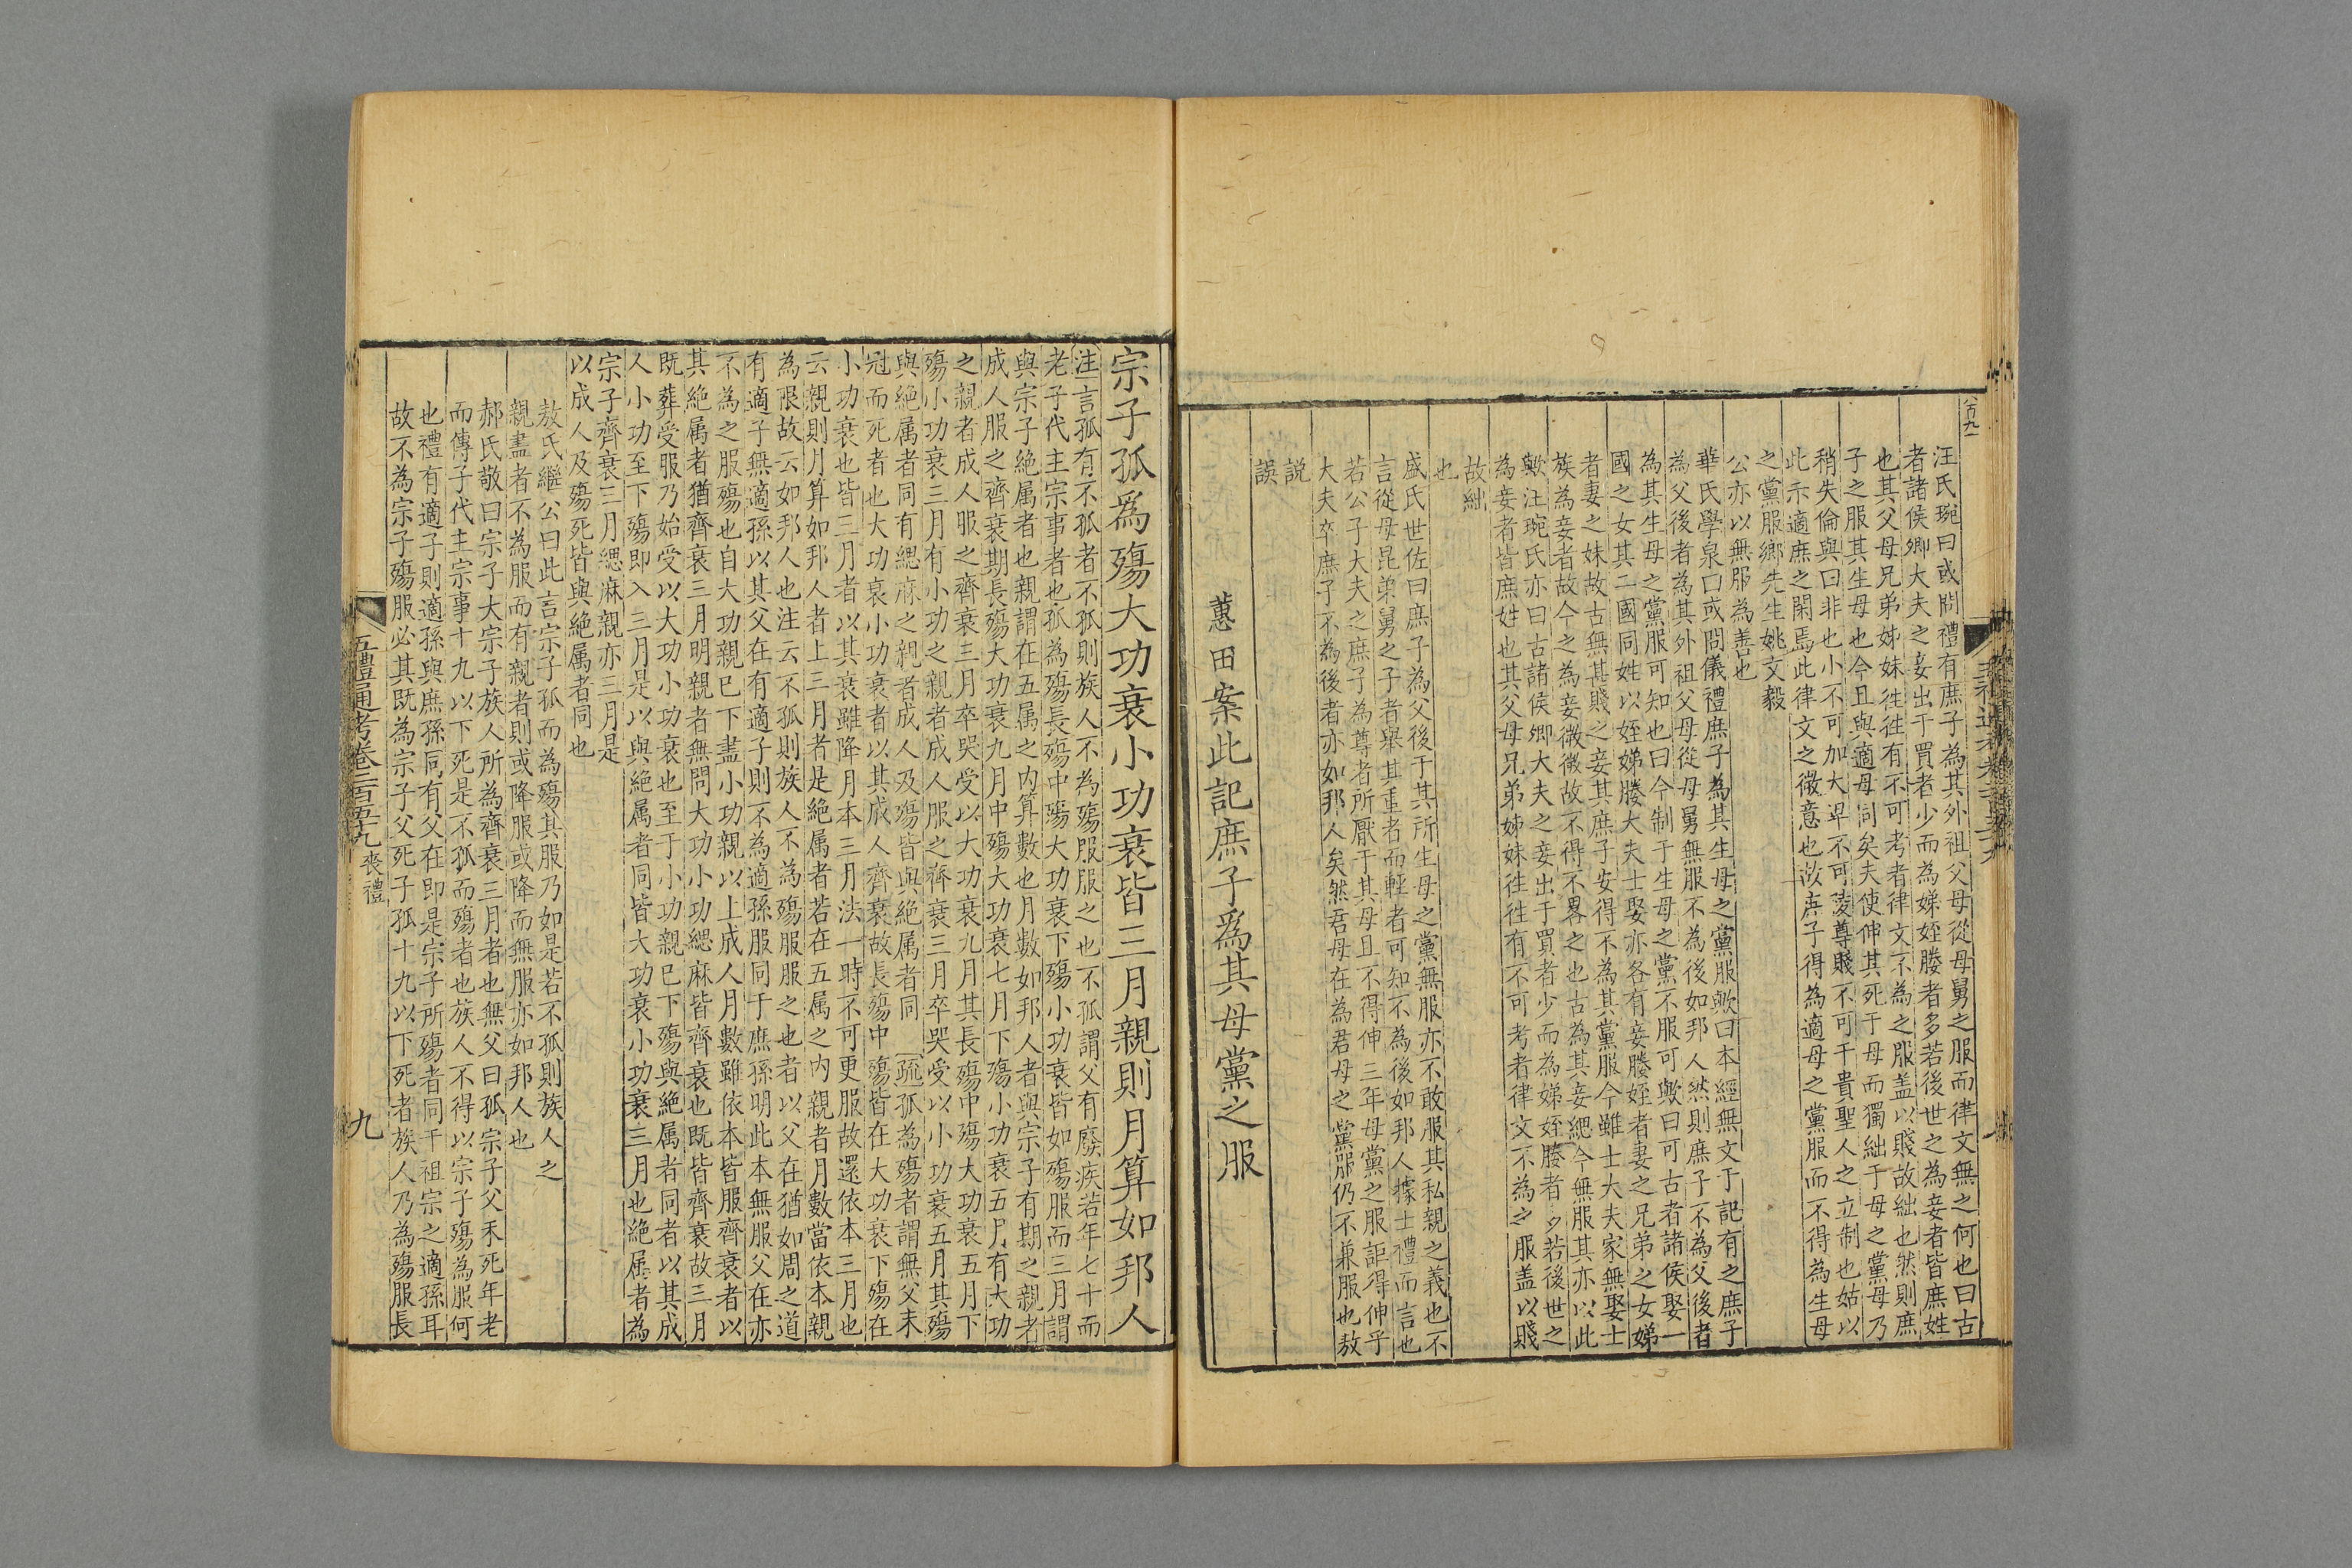 八百九一
汪氏琬曰或問禮有庶子為其外祖父母從母舅之服而律文無之何也曰古
者諸侯卿大夫之妾出于買者少而為娣姪媵者多若後世之為妾者皆庶姓
也其父母兄弟姊妹徃徃有不可考者律文不為之服盖以賤故絀也然則庶
子之服其生母也今且與適母同矣夫使伸其死于母而獨絀于母之黨毋乃
稍失倫與曰非也小不可加大卑不可淩尊賤不可干貴聖人之立制也姑以
此示適庶之閑焉此律文之微意也故庶子得為適母之黨服而不得為生母
之黨服鄉先生姚文毅
公亦以無服為善也
華氏學泉曰或問儀禮庶子為其生母之黨服歟曰本經無文于記有之庶子
為父後者為其外祖父母從母舅無服不為後如邦人然則庶子不為父後者
為其生母之黨服可知也曰今制于生母之黨不服可歟曰可古者諸侯娶一
國之女其二國同姓以姪娣媵大夫士娶亦各有妾媵姪者妻之兄弟之女娣
者妻之妹故古無甚賤之妾其庶子安得不為其黨服今雖士大夫家無娶士
族為妾者故今之為妾微微故不得不畧之也古為其妾緦今無服其亦以此
歟汪琬氏亦曰古諸侯卿大夫之妾出于買者少而為娣姪媵者多若後世之
為妾者皆庶姓也其父母兄弟姊妹徃徃有不可考者律文不為之服盖以賤
故絀
也
盛氏世佐曰庶子為父後于其所生母之黨無服亦不敢服其私親之義也不
言從母昆弟舅之子者舉其重者而輕者可知不為後如邦人據士禮而言也
若公子大夫之庶子為尊者所厭于其母且不得伸三年母黨之服詎得伸乎
大夫卒庶子不為後者亦如邦人矣然君母在為君母之黨服仍不兼服也敖
說
誤
蕙田案此記庶子爲其母黨之服
宗子孤爲殤大功衰小功衰皆三月親則月算如邦人
注言孤有不孤者不孤則族人不為殤服服之也不孤謂父有廢疾若年七十而
老子代主宗事者也孤為殤長殤中殤大功衰下殤小功衰皆如殤服而三月謂
與宗子絶属者也親謂在五属之内算數也月數如邦人者與宗子有期之親者
成人服之齊衰期長殤大功衰九月中殤大功衰七月下殤小功衰五月有大功
之親者成人服之齊衰三月卒哭受以大功衰九月其長殤中殤大功衰五月下
殤小功衰三月有小功之親者成人服之齊衰三月卒哭受以小功衰五月其殤
與絶属者同有緦麻之親者成人及殤皆與絶属者同　疏孤為殤者謂無父未
冠而死者也大功衰小功衰者以其成人齊衰故長殤中殤皆在大功衰下殤在
小功衰也皆三月者以其衰雖降月本三月法一時不可更服故還依本三月也
云親則月算如邦人者上三月者是絶属者若在五属之内親者月數當依本親
為限故云如邦人也注云不孤則族人不為殤服服之也者以父在猶如周之道
有適子無適孫以其父在有適子則不為適孫服同于庶孫明此本無服父在亦
不為之服殤也自大功親已下盡小功親以上成人月數雖依本皆服齊衰者以
其絶属者猶齊衰三月明親者無問大功小功緦麻皆齊衰也既皆齊衰故三月
既葬受服乃始受以大功小功衰也至于小功親已下殤與絶属者同者以其成
人小功至下殤即入三月是以與絶属者同皆大功衰小功衰三月也絶属者為
宗子齊衰三月緦麻親亦三月是
以成人及殤死皆與絶属者同也
敖氏繼公曰此言宗子孤而為殤其服乃如是若不孤則族人之
親盡者不為服而有親者則或降服或降而無服亦如邦人也
郝氏敬曰宗子大宗子族人所為齊衰三月者也無父曰孤宗子父未死年老
而傳子代主宗事十九以下死是不孤而殤者也族人不得以宗子殤為服何
也禮有適子則適孫與庶孫同有父在即是宗子所殤者同于祖宗之適孫耳
故不為宗子殤服必其既為宗子父死子孤十九以下死者族人乃為殤服長
五禮通考卷二百五十九　喪禮
九